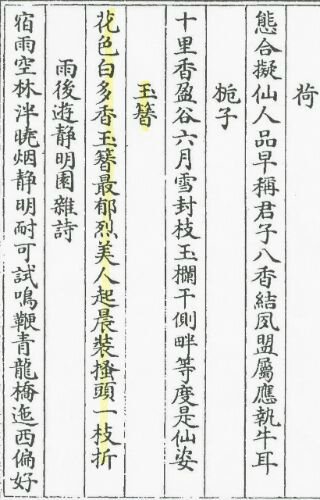 荷
態合擬仙人品早稱君子八香結夙盟屬應執牛耳
梔子
十里香盈谷六月雪封枝玉欄干側畔等度是仙姿
玉簪
花色白多香玉簪最郁烈美人起晨裝搔頭一枝折
雨後遊静明園雜詩
宿雨空林泮曉烟静明耐可試鳴鞭青龍橋迤西偏好